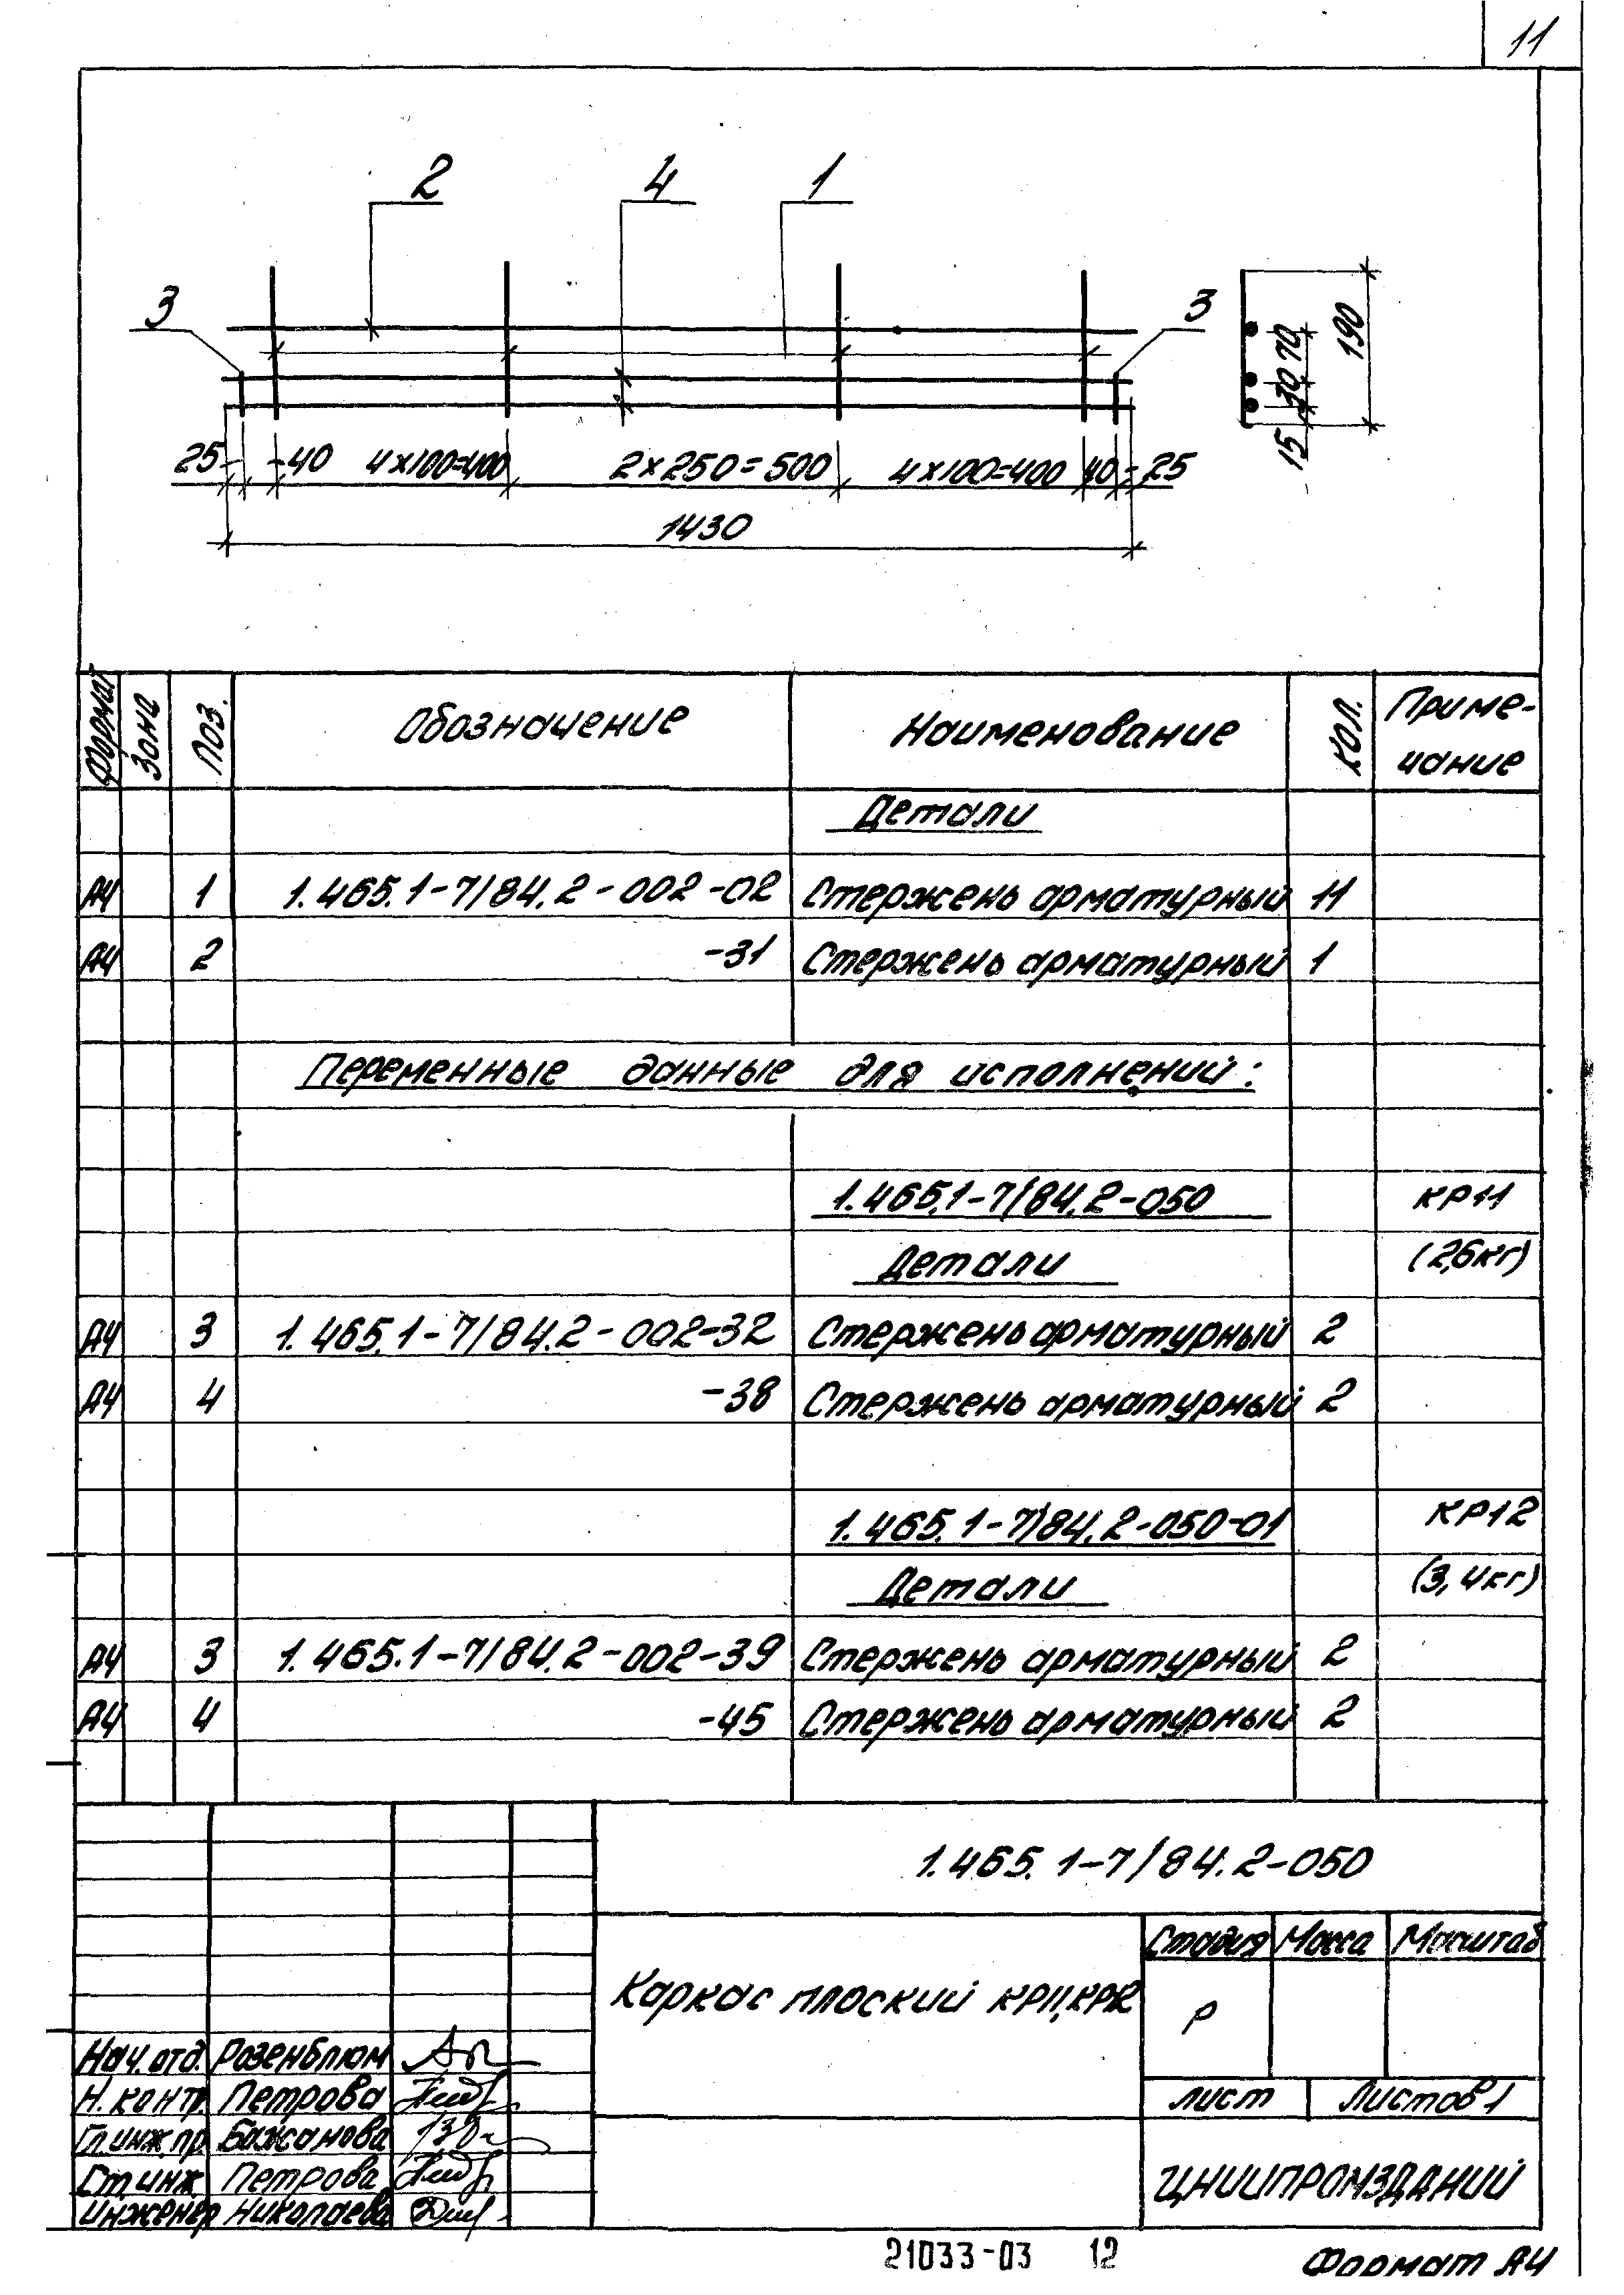 11
2 4 1
3 3
190
70
30
15
25 40 4×100=400 2×250=500 4×100=400 40 25
1430
Формат Зона Поз. Обозначение Наименование Кол. Приме-
чание
Детали
А4 1 1.465.1-7/84.2-002-02 Стержень арматурный 11
А4 2 -31 Стержень арматурный 1
Переменные данные для исполнений:
1.465.1-7/84.2-050 КР11
Детали (2,6кг)
А4 3 1.465.1-7/84.2-002-32 Стержень арматурный 2
А4 4 -38 Стержень арматурный 2
1.465.1-7/84.2-050-01 КР12
Детали (3,4кг)
А4 3 1.465.1-7/84.2-002-39 Стержень арматурный 2
А4 4 -45 Стержень арматурный 2
1.465.1-7/84.2-050
Стадия Масса Масштаб
Каркас плоский КР11, КР12
Р
Лист Листов 1
Нач.отд. Розенблюм
Н.контр. Петрова
Гл.инж.пр. Бажанова
Ст.инж. Петрова
Инженер Николаева
ЦНИИПРОМЗДАНИЙ
21033-03 12
Формат А4